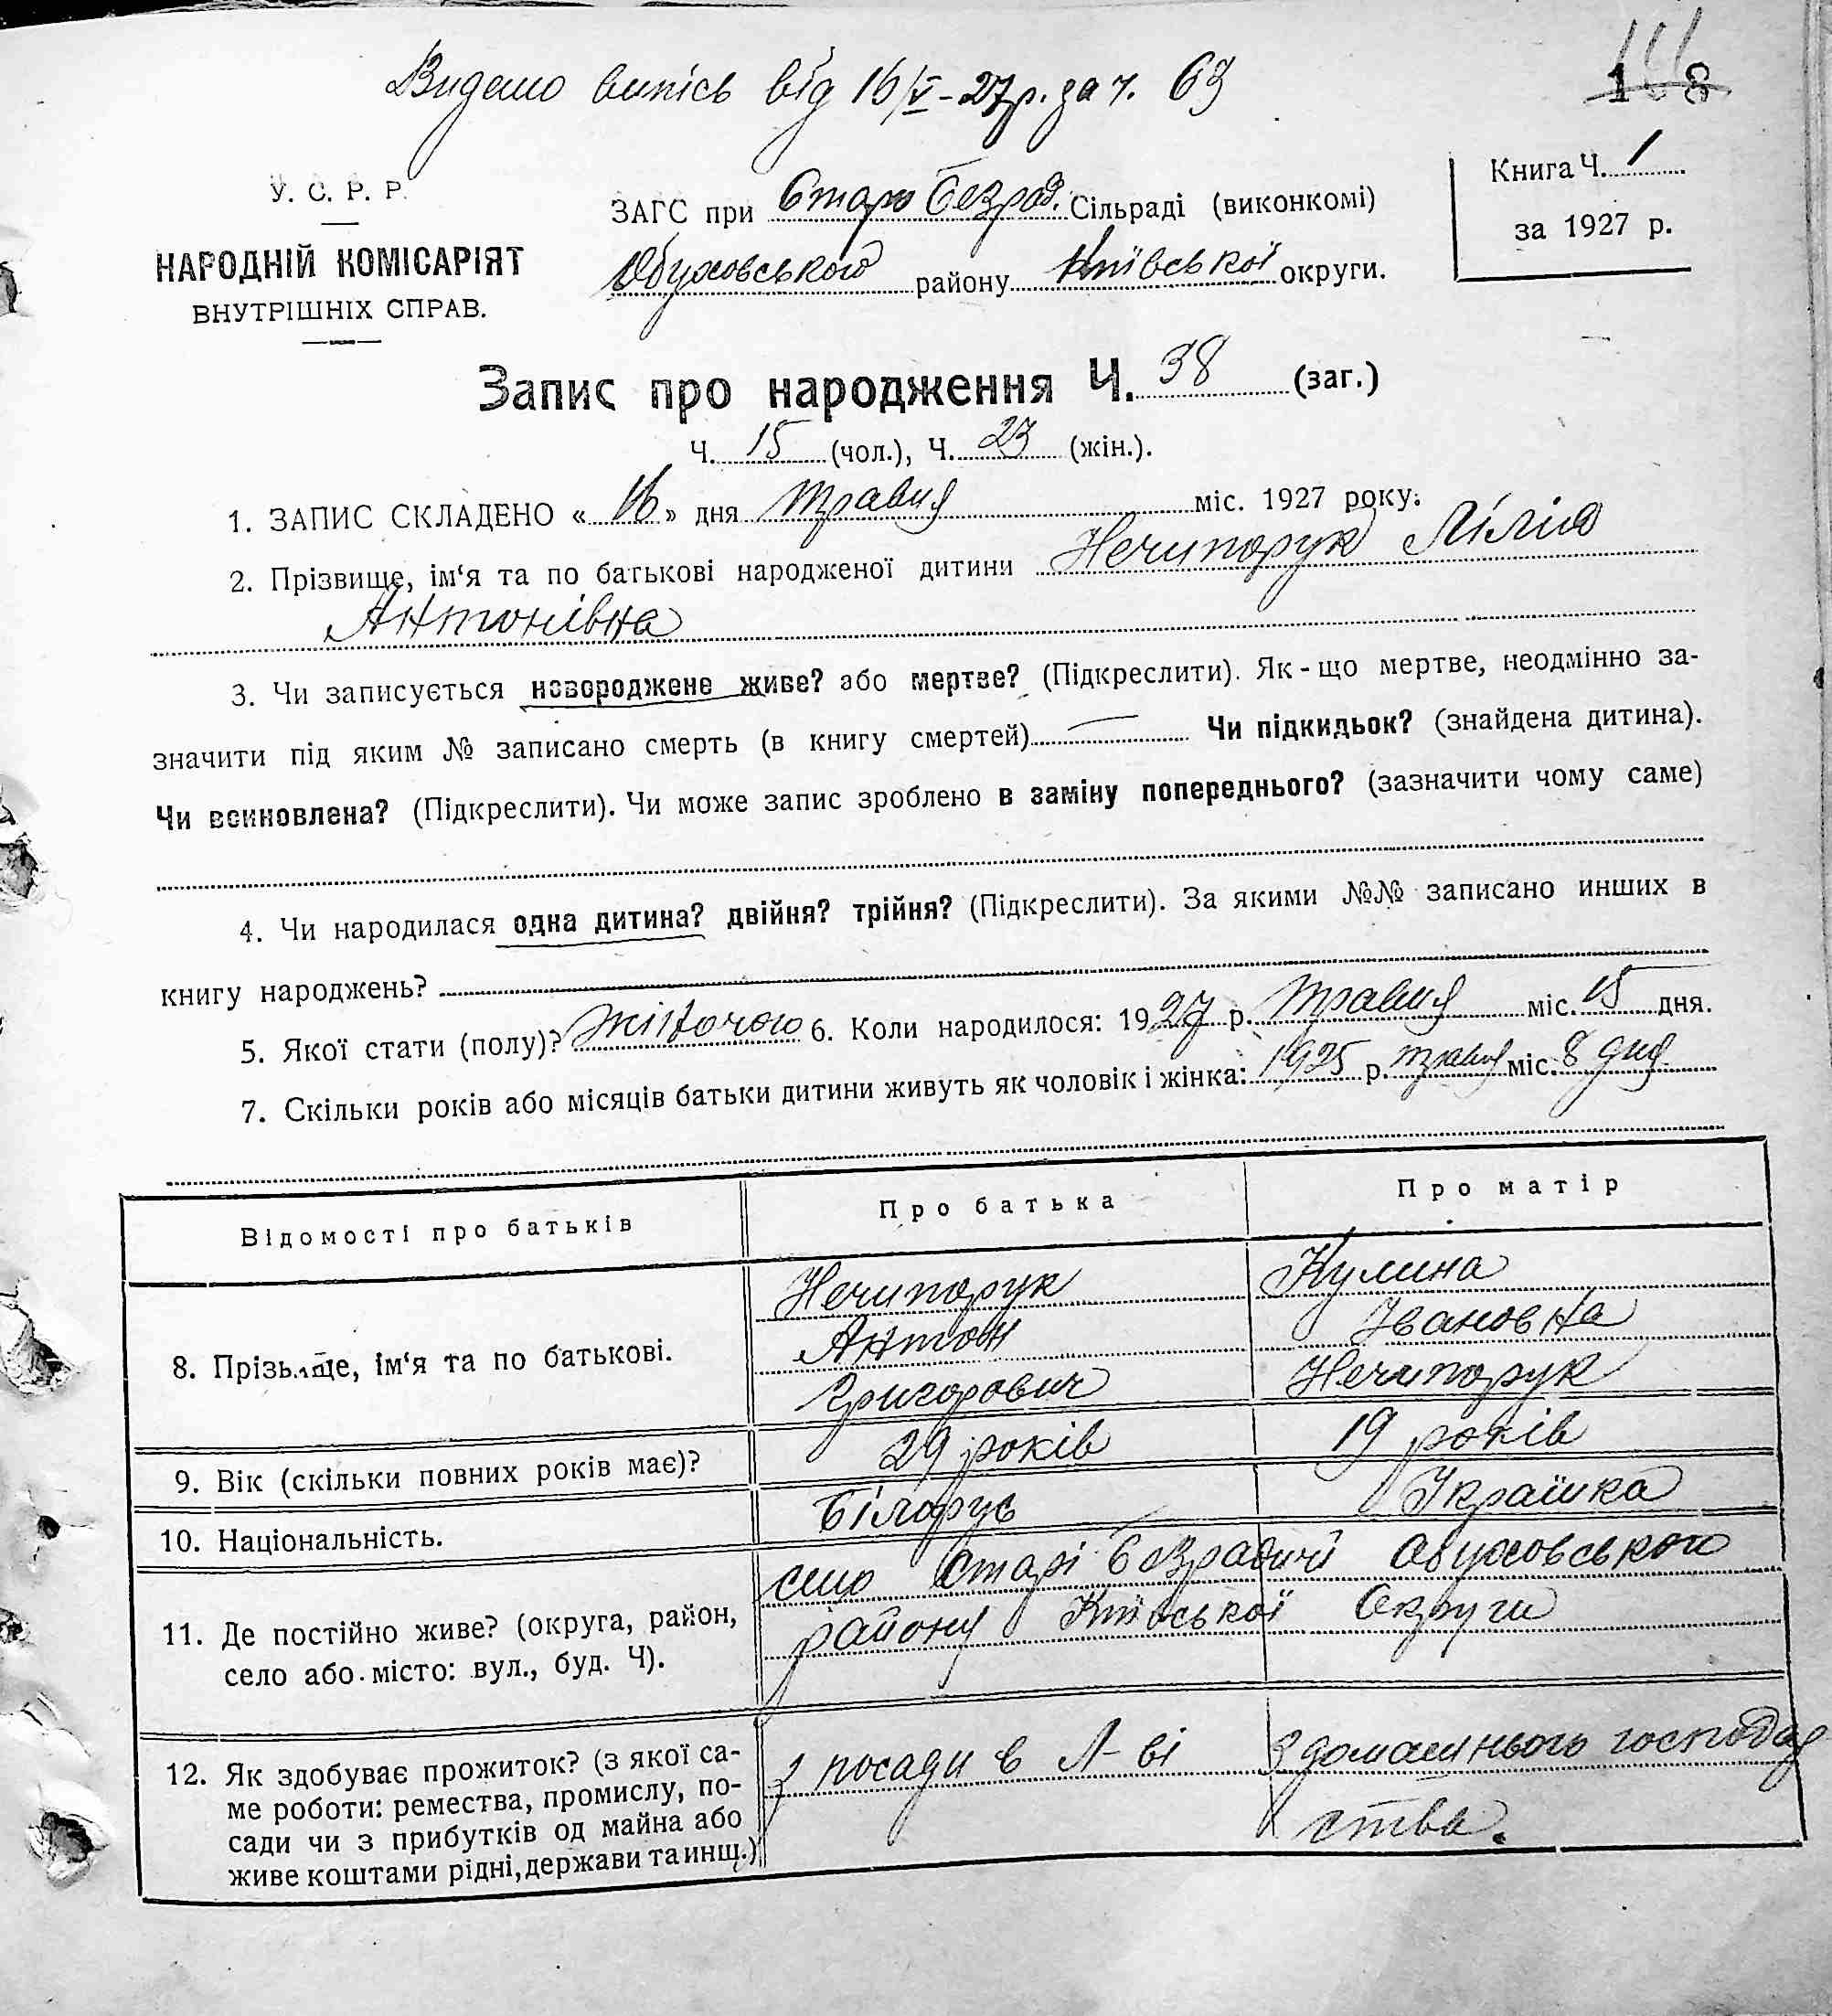 Видано випісь від 16/V-27р. за ч. 63
118
У. С. Р. Р.
НАРОДНІЙ КОМІСАРІЯТ
ВНУТРІШНІХ СПРАВ.
ЗАГС при Старо Безрад. Сільраді (виконкомі)
Обуховського району Київської округи.
Книга Ч. 1
за 1927 р.
Запис про народження Ч. 38 (заг.)
Ч. 15 (чол.), Ч. 23 (жін.).
1. ЗАПИС СКЛАДЕНО « 16 » дня травня міс. 1927 року.
2. Прізвище, ім‘я та по батькові народженої дитини Нечипорук Лілія
Антонівна
3. Чи записується новороджене живе? або мертве? (Підкреслити). Як-що мертве, неодмінно за-
значити під яким № записано смерть (в книгу смертей) Чи підкидьок? (знайдена дитина).
Чи всиновлена? (Підкреслити). Чи може запис зроблено в заміну попереднього? (зазначити чому саме)
4. Чи народилася одна дитина? двійня? трійня? (Підкреслити). За якими №№ записано инших в
книгу народжень?
5. Якої стати (полу)? жіночою 6. Коли народилося: 1927 р. травня міс. 15 дня.
7. Скільки років або місяців батьки дитини живуть як чоловік і жінка: 1925 р. травня міс. 8 дня
Відомості про батьків Про батька Про матір
8. Прізвище, ім‘я та по батькові.
Нечипорук Кулина
Антон Івановна
Григорович Нечипорук
9. Вік (скільки повних років має)? 29 років 19 років
10. Національність. Білорус Украінка
11. Де постійно живе? (округа, район,
село або місто: вул., буд. Ч).
село Старі Безрадичі Обуховського
району Київської Округи
12. Як здобуває прожиток? (з якої са-
ме роботи: ремества, промислу, по-
сади чи з прибутків од майна або
живе коштами рідні, держави та инщ.)
з посади в Л-ві з домашнього господар
ства.